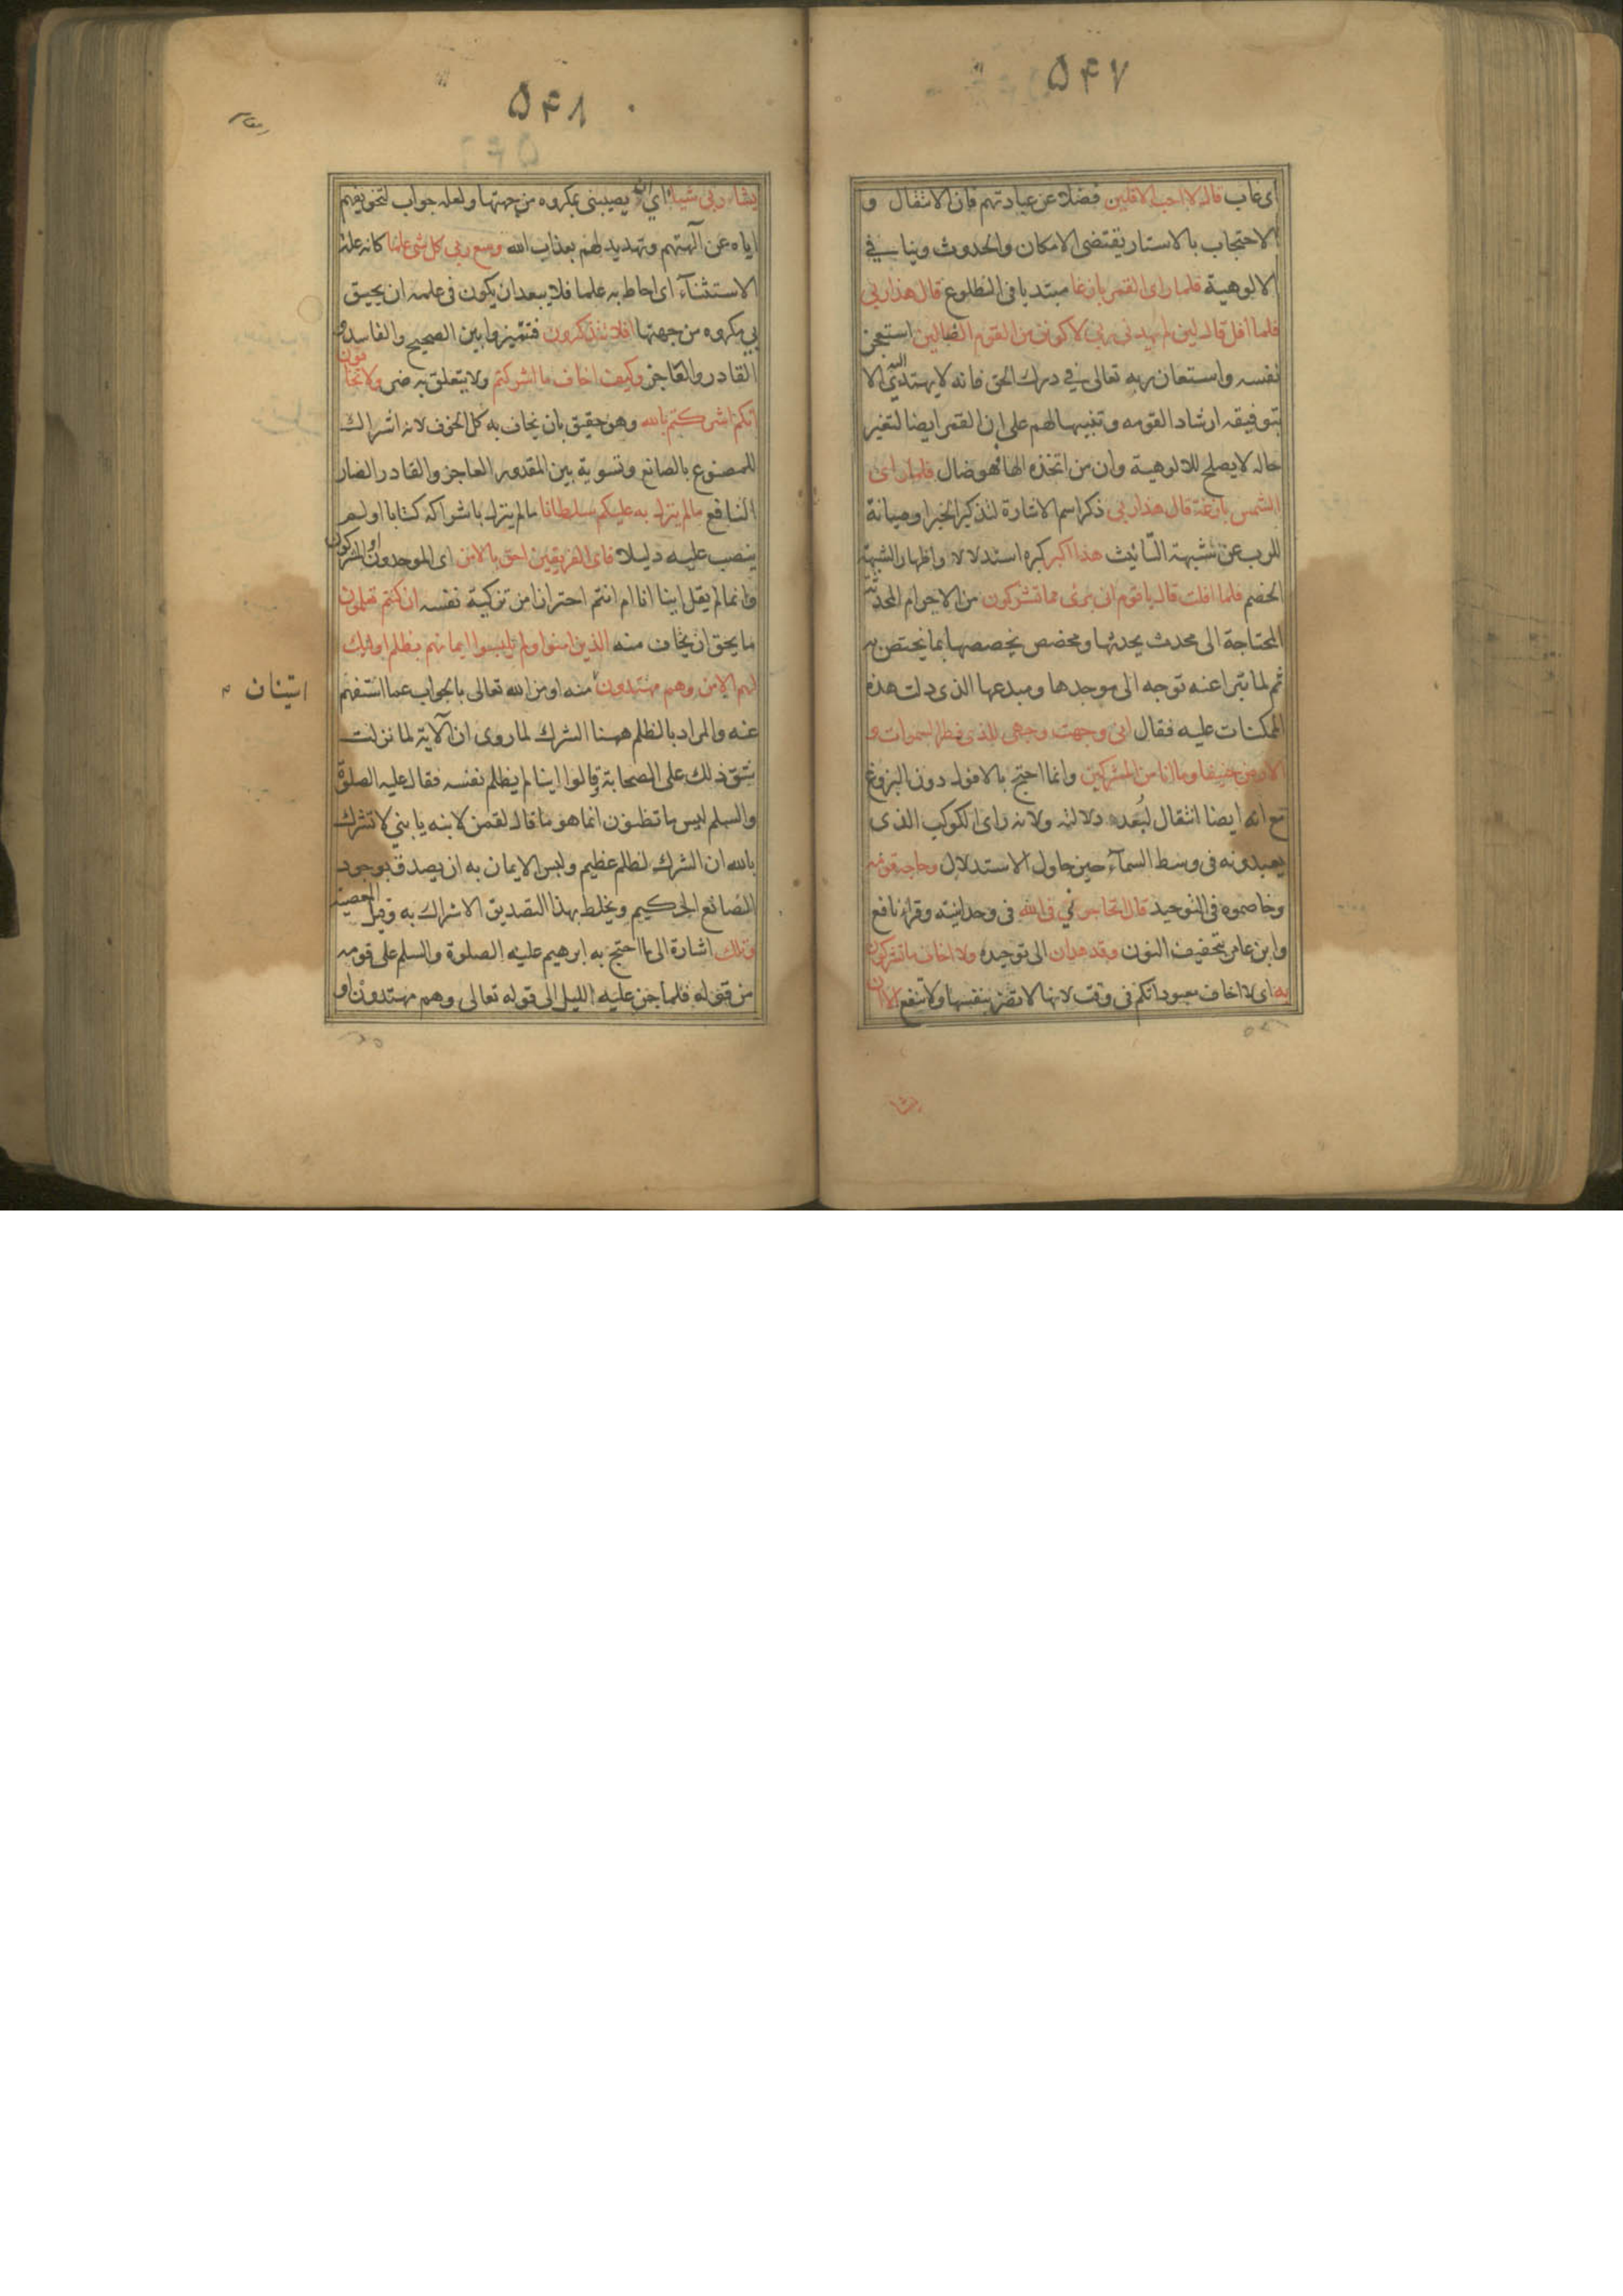 ۵۴۷
اى غاب قال لا احب الافلين فضلا عن عبادتهم فان الانتقال و
الاحتجاب بالاستار يقتضى الامكان والحدوث وينافى
الالوهية فلما راى القمر بازغا مبتديا فى الطلوع قال هذا ربى
فلما افل قال لين لم يهدنى ربى لاكونن من القوم الضالين استعجز
نفسه واستعان بربه تعالى فى درك الحق فانه لا يهتدى اليه الا
بتوفيقه ارشادا لقومه وتنبيها لهم على ان القمر ايضا لتغير
حاله لا يصلح للالوهية وان من اتخذه الها فهو ضال فلما راى
الشمس بازغة قال هذا ربى ذكر اسم الاشارة لتذكير الخبر او صيانة
للرب عن شبهة التانيث هذا اكبر كبره استدلالا واظهارا لشبهة
الخصم فلما افلت قال يا قوم انى برئ مما تشركون من الاجرام المحدثة
المحتاجة الى محدث يحدثها ومخصص يخصصها بما يختص به
ثم لما تبرا عنه توجه الى موجدها ومبدعها الذى دلت هذه
الممكنات عليه فقال انى وجهت وجهى للذى فطر السموات و
الارض حنيفا وما انا من المشركين وانما احتج بالافول دون البزوغ
مع انه ايضا انتقال لبعده دلالته ولانه راى الكوكب الذى
يعبدونه فى وسط السمآء حين حاول الاستدلال وحاجه قومه
وخاصموه فى التوحيد قال اتحاجونى فى الله فى وحدانيته وقرا نافع
وابن عامر بتخفيف النون وقد هدان الى توحيده ولا اخاف ما تشركون
به اى لا اخاف معبوداتكم فى وقت لانها لا تضر بنفسها ولا تنفع الا ان
يشا
۵۴۸
يشاء ربى شيئا اى ان يصيبنى بمكروه من جهتها ولعله جواب لتخويفهم
اياه عن آلهتهم وتهديد لهم بعذاب الله وسع ربى كل شى علما كانه علة
الاستثنآء اى احاط به علما فلا يبعد ان يكون فى علمه ان يحيق
بى مكروه من جهتها افلا تتذكرون فتميزوا بين الصحيح والفاسد و
القادر والعاجز وكيف اخاف ما اشركتم ولا يتعلق به ضر ولا تخافون
انكم اشركتم بالله وهو حقيق بان يخاف به كل الخوف لانه اشراك
للمصنوع بالصانع وتسوية بين المقدور العاجز والقادر الضار
النافع ما لم ينزل به عليكم سلطانا ما لم ينزل باشراكه كتابا او لم
ينصب عليه دليلا فاى الفريقين احق بالامن اى الموحدون او المشركون
وانما لم يقل اينا انا ام انتم احترازا من تزكية نفسه ان كنتم تعلمون
ما يحق ان يخاف منه الذين امنوا ولم يلبسوا ايمانهم بظلم اوليك
لهم الامن وهم مهتدون منه او من الله تعالى بالجواب عما استفهم
استيناف
عنه والمراد بالظلم ههنا الشرك لما روى ان الآية لما نزلت
شق ذلك على الصحابة وقالوا اينا لم يظلم نفسه فقال عليه الصلوة
والسلم ليس ما تظنون انما هو ما قال لقمن لابنه يا بنى لا تشرك
بالله ان الشرك لظلم عظيم وليس الايمان به ان يصدق بوجود
الصانع الحكيم ويخلط بهذا التصديق الاشراك به وقيل المعصية
وتلك اشارة الى ما احتج به ابرهيم عليه الصلوة والسلم على قومه
من قوله فلما جن عليه الليل الى قوله تعالى وهم مهتدون او